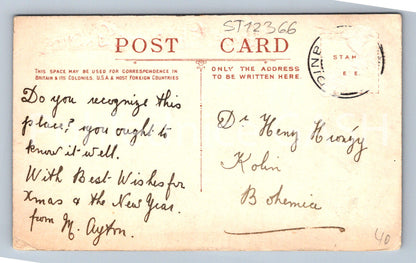 ST12366
POST CARD
THIS SPACE MAY BE USED FOR CORRESPONDENCE IN
BRITAIN & ITS COLONIES, U.S.A & MOST FOREIGN COUNTRIES
ONLY THE ADDRESS
TO BE WRITTEN HERE.
STAM
E E.
Do you recognize this
place? you ought to
know it well.
With Best Wishes for
Xmas & the New Year.
from M. Ayton.
Dr Heny
Kolin
Bohemia
40